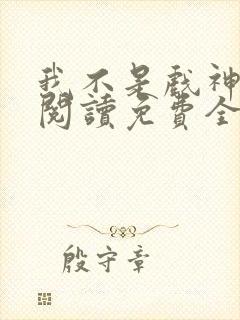 我不是戲神
閱讀免費全
殷守章